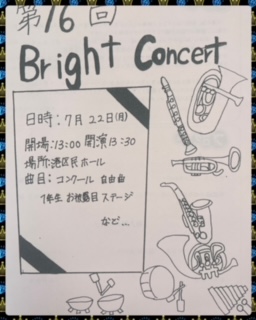 第16回
Bright Concert
日時:7月22日(月)
開場:13:00 開演13:30
場所:港区民ホール
曲目:コンクール 自由曲
1年生 お披露目ステージ
など...